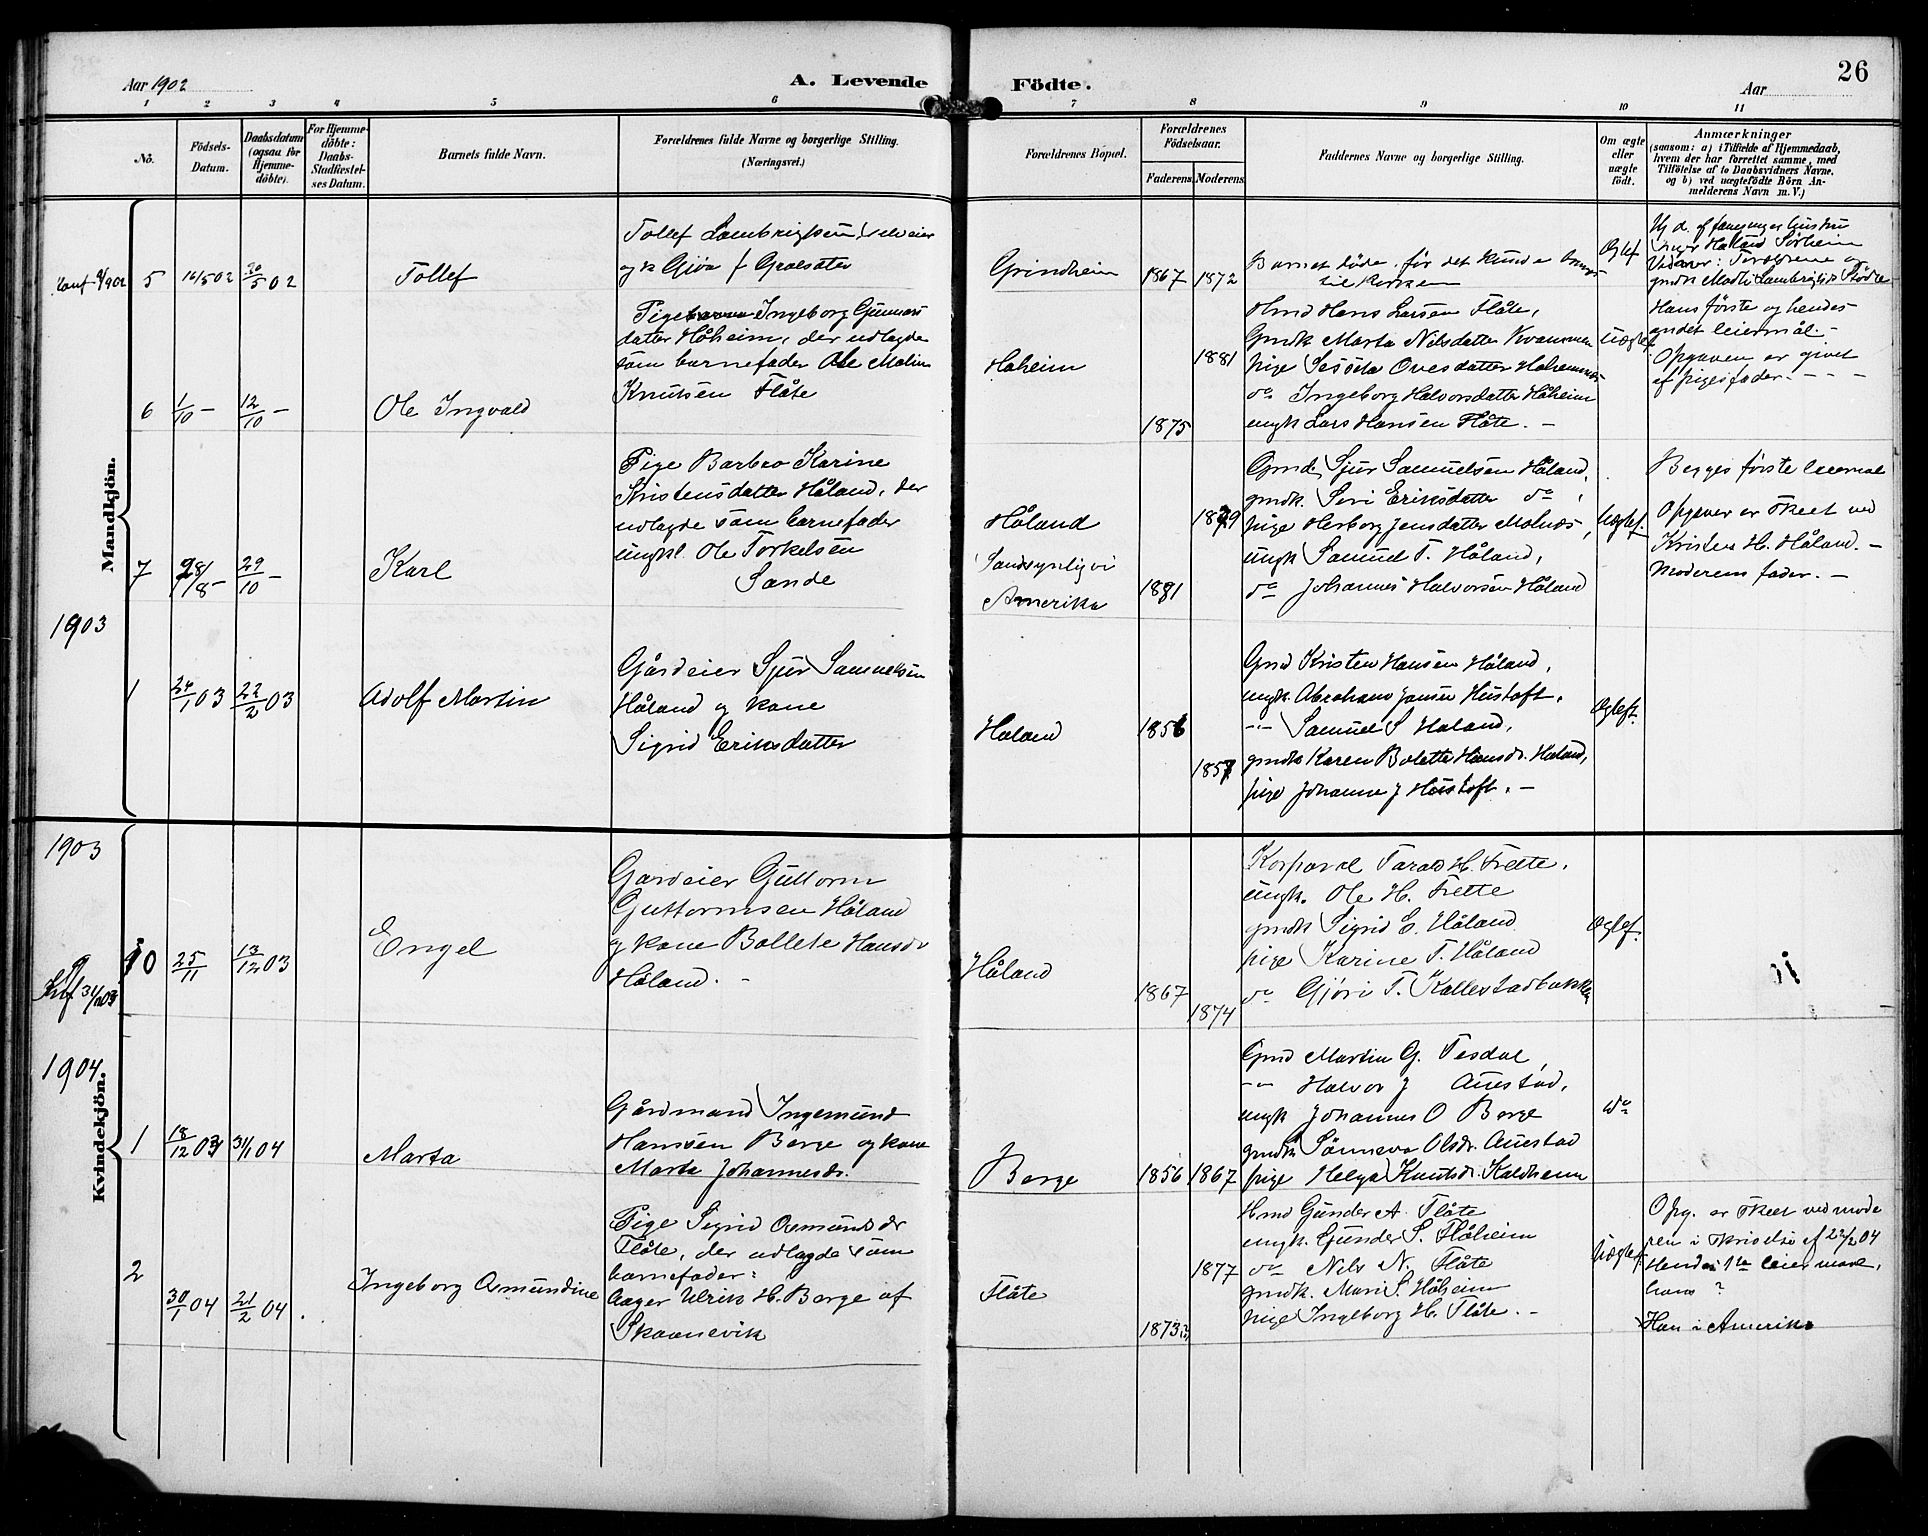 26
Aar 1902
A. Levende
Födte.
Aar
1 2 3 4 5 6 7 8 9 10 11
No.
Födsels-
Datum.
Daabsdatum
(ogsaa for
Hjemme-
döbte).
For Hjemme-
döbte:
Daabs-
Stadfæstel-
ses Datum.
Barnets fulde Navn.
Forældrenes fulde Navne og borgerlige Stilling.
(Næringsvei.)
Forældrenes Bopæl.
Forældrenes
Födselsaar.
Faderens. Moderens.
Faddernes Navne og borgerlige Stilling.
Om ægte
eller
uægte
födt.
Anmærkninger
(saasom: a) i Tilfælde af Hjemmedaab,
hvem der har forrettet samme, med
Tilföielse af to Daabsvidners Navne,
og b) ved uægtefödte Börn An-
melderens Navn m. V.)
Mandkjön.
5
16/5 02
30/5 02
Tollef
Tollef Lambrigtsen, selveier
og k Gjöa
Grindheim
1867 1872
Barnet döde för det kunde
til kirken
Ægtef
Hj d. af
Håland Sørheim
6
1/10 –
12/10 –
Ole Ingvald
Pige Ingeborg Gunnars
datter Håheim, der udlagde
som barnefader Ole Malin
Knutsen Flåte
Håheim
1875
1881
Hmd Hans Larsen Flåte,
Gmdk Marta Nilsdatter Kvammen
pige Ovesdatter
do Ingeborg Halvorsdatter Håheim
ungk Lars Hansen Flåte. –
Uægtef
Hans første og hendes
andet leiermål. –
Opgaven er givet
af pigens fader. – – –
7
28/8 –
29/10 –
Karl
Pige Barbro Karine
Kristensdatter Håland, der
udlagde som barnefader
ungkl. Ole Torkelsen
Sande
Håland
Sandsynligvi
Amerika
1881
1879
Gmd Sjur Samuelsen Håland,
gmdk. Siri Eriksdatter do,
pige Herborg Jensdatter Molnæs,
ungk Samuel T. Håland,
do Johannes Halvorsen Håland
Uægtef.
Begges første leiermål
Opgaver er skeet ved
Kristen H. Håland. –
Moderens fader. –
1903
1
24/1 03
22/2 03
Adolf Martin
Gårdeier Sjur Samuelsen
Håland og kone
Sigrid Eriksdatter
Håland
1856
1857
Gmd Kristen Hansen Håland,
ungk. Abraham Jansen Hustoft,
–"– Samuel S Håland,
gmdk Karen Bolette Hansdr. Håland,
pige Johanne J Hustoft. –
Ægtef.
Kvindekjön.
1903
10
25/11
13/12 03
Engel
Gårdeier Guttorm
Guttormsen Håland
og kone Bollete Hansdr
Håland. –
Håland
1867
1874
Korporal Tarald H. Frette,
ungk. Ole H. Frette
gmdk Sigrid E. Håland
pige Karine T. Håland
do Gjöri T. Kallestadbakken
Ægtef.
1904
1
18/12 03
31/1 04
Marta
Gårdmand Ingemund
Hansen Berge og kone
Marta Johannesdr.
Berge
1856 1867
Gmd Martin G. Tesdal,
–"– Halvor J Auestad,
ungk Johannes O Berge
gmdk Sønneva Olsdr. Auestad
pige Helga Knutsdr. Kaldheim
do
2
30/1 04
21/2 04
Ingeborg Osmundine
Pige Sigrid Osmundsdr
Flåte, der udlagde som
barnefader:
Aager Ulrik H. Berge af
Skaanevik
Flåte
1873
1877
Hmd Gunder A. Flåte
ungk. Gunder S. Håheim
do Nils N. Flåte
gmdk. Mari S. Håheim
pige Ingeborg H. Flåte. –
Uægtef.
Opg. er skeet ved mode
ren i skrivelse af 22/2 04
Hendes 1te leiermål,
hans ?
Han i Amerika